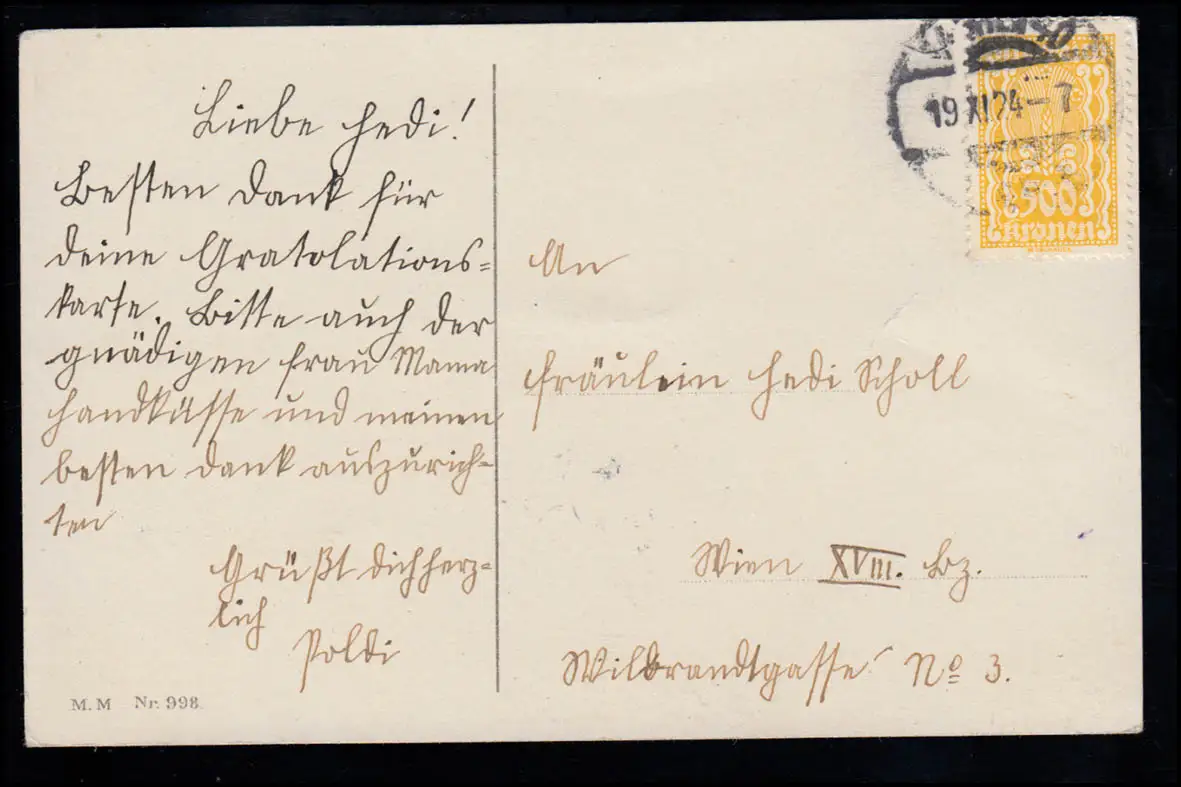 Liebe Hedi!
Besten Dank für
deine Gratolations=
karte. Bitte auch der
gnädigen Frau Mama
Handküsse und meinen
besten Dank auszurich=
ten
Grüßt dich herz=
lich
Poldi
M. M Nr. 998.
19 XI 24 - 7
500
Kronen
An
Fräulein Hedi Scholl
Wien XVIII. Bz.
Wilbrandtgasse No 3.